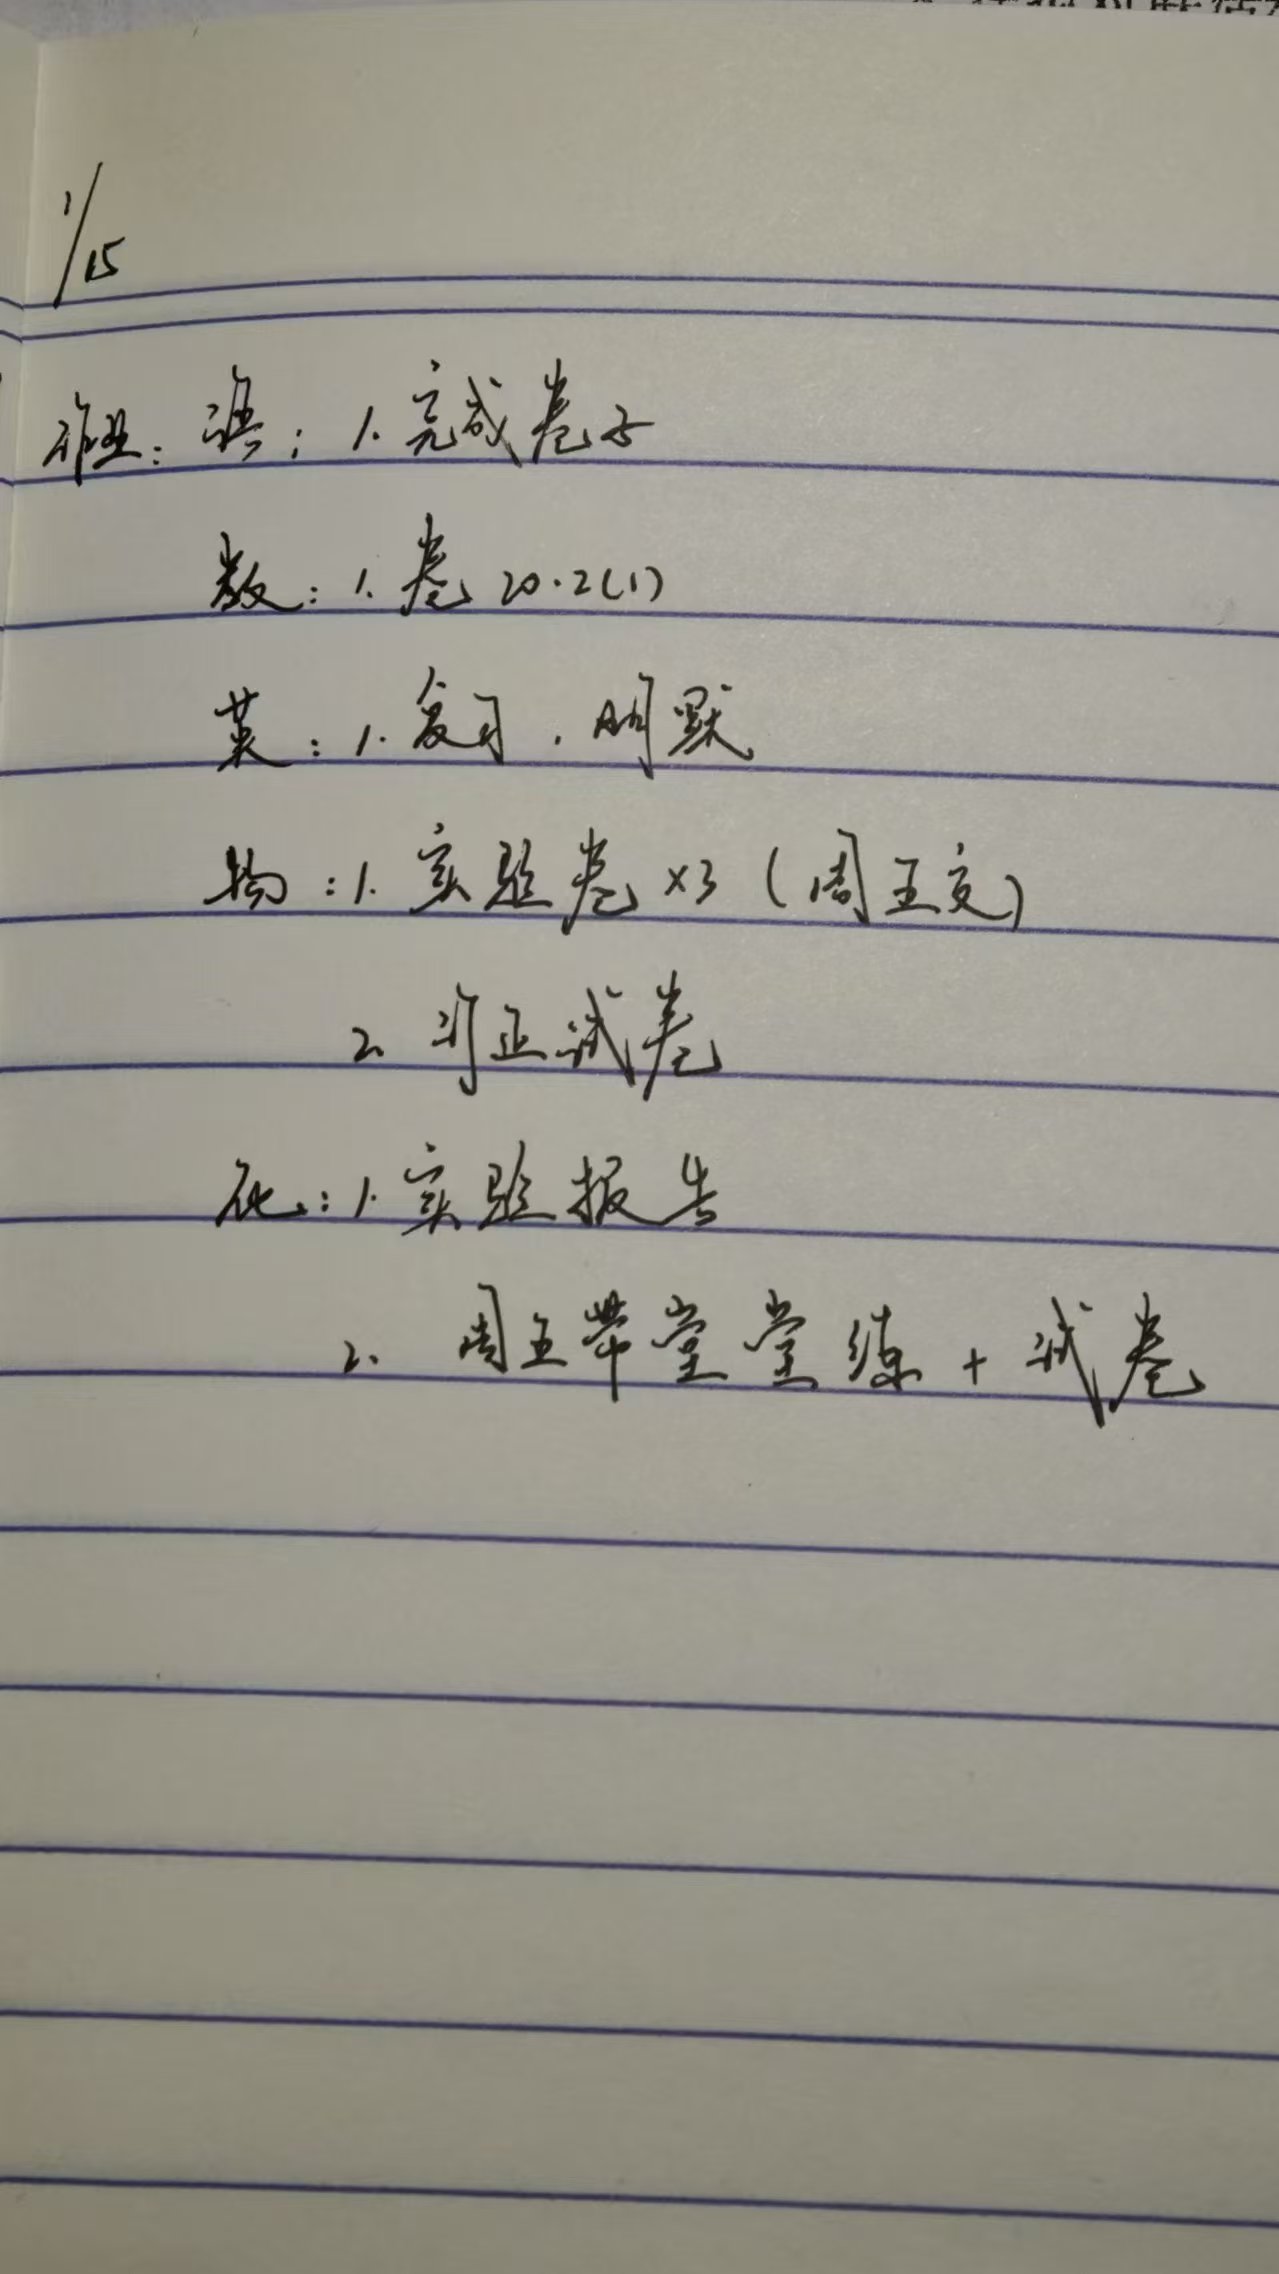 1/15
作业：语：1.完成卷子
数：1.卷20.2(1)
英：1.复习．明默
物：1.实验卷×3（周五交）
2.订正试卷
化：1.实验报告
2.周五带堂堂练+试卷